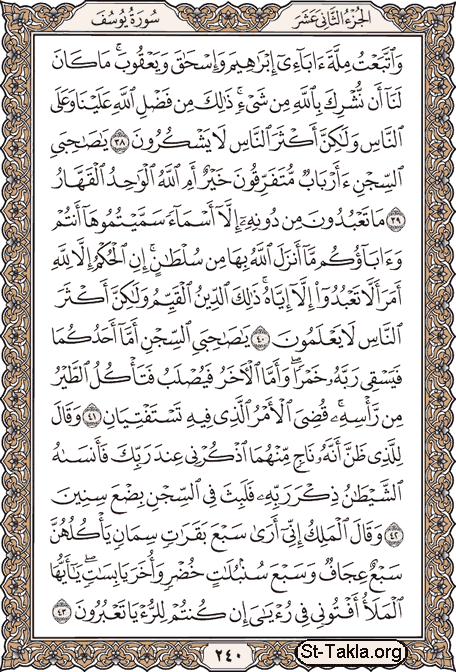 الجزء الثاني عشر
سورة يوسف
وَاتَّبَعْتُ مِلَّةَ ءَابَآءِىٓ إِبْرَٰهِيمَ وَإِسْحَٰقَ وَيَعْقُوبَ ۚ مَا كَانَ
لَنَآ أَن نُّشْرِكَ بِاللَّهِ مِن شَىْءٍ ۚ ذَٰلِكَ مِن فَضْلِ اللَّهِ عَلَيْنَا وَعَلَى
النَّاسِ وَلَٰكِنَّ أَكْثَرَ النَّاسِ لَا يَشْكُرُونَ ٣٨ يَٰصَٰحِبَىِ
السِّجْنِ ءَأَرْبَابٌ مُّتَفَرِّقُونَ خَيْرٌ أَمِ اللَّهُ الْوَٰحِدُ الْقَهَّارُ
٣٩ مَا تَعْبُدُونَ مِن دُونِهِۦٓ إِلَّآ أَسْمَآءً سَمَّيْتُمُوهَآ أَنتُمْ
وَءَابَآؤُكُم مَّآ أَنزَلَ اللَّهُ بِهَا مِن سُلْطَٰنٍ ۚ إِنِ الْحُكْمُ إِلَّا لِلَّهِ
أَمَرَ أَلَّا تَعْبُدُوٓا۟ إِلَّآ إِيَّاهُ ۚ ذَٰلِكَ الدِّينُ الْقَيِّمُ وَلَٰكِنَّ أَكْثَرَ
النَّاسِ لَا يَعْلَمُونَ ٤٠ يَٰصَٰحِبَىِ السِّجْنِ أَمَّآ أَحَدُكُمَا
فَيَسْقِى رَبَّهُۥ خَمْرًا ۖ وَأَمَّا الْءَاخَرُ فَيُصْلَبُ فَتَأْكُلُ الطَّيْرُ
مِن رَّأْسِهِۦ ۚ قُضِىَ الْأَمْرُ الَّذِى فِيهِ تَسْتَفْتِيَانِ ٤١ وَقَالَ
لِلَّذِى ظَنَّ أَنَّهُۥ نَاجٍ مِّنْهُمَا اذْكُرْنِى عِندَ رَبِّكَ فَأَنسَىٰهُ
الشَّيْطَٰنُ ذِكْرَ رَبِّهِۦ فَلَبِثَ فِى السِّجْنِ بِضْعَ سِنِينَ
٤٢ وَقَالَ الْمَلِكُ إِنِّىٓ أَرَىٰ سَبْعَ بَقَرَٰتٍ سِمَانٍ يَأْكُلُهُنَّ
سَبْعٌ عِجَافٌ وَسَبْعَ سُنۢبُلَٰتٍ خُضْرٍ وَأُخَرَ يَابِسَٰتٍ ۖ يَٰٓأَيُّهَا
الْمَلَأُ أَفْتُونِى فِى رُءْيَٰىَ إِن كُنتُمْ لِلرُّءْيَا تَعْبُرُونَ ٤٣
٢٤٠
St-Takla.org